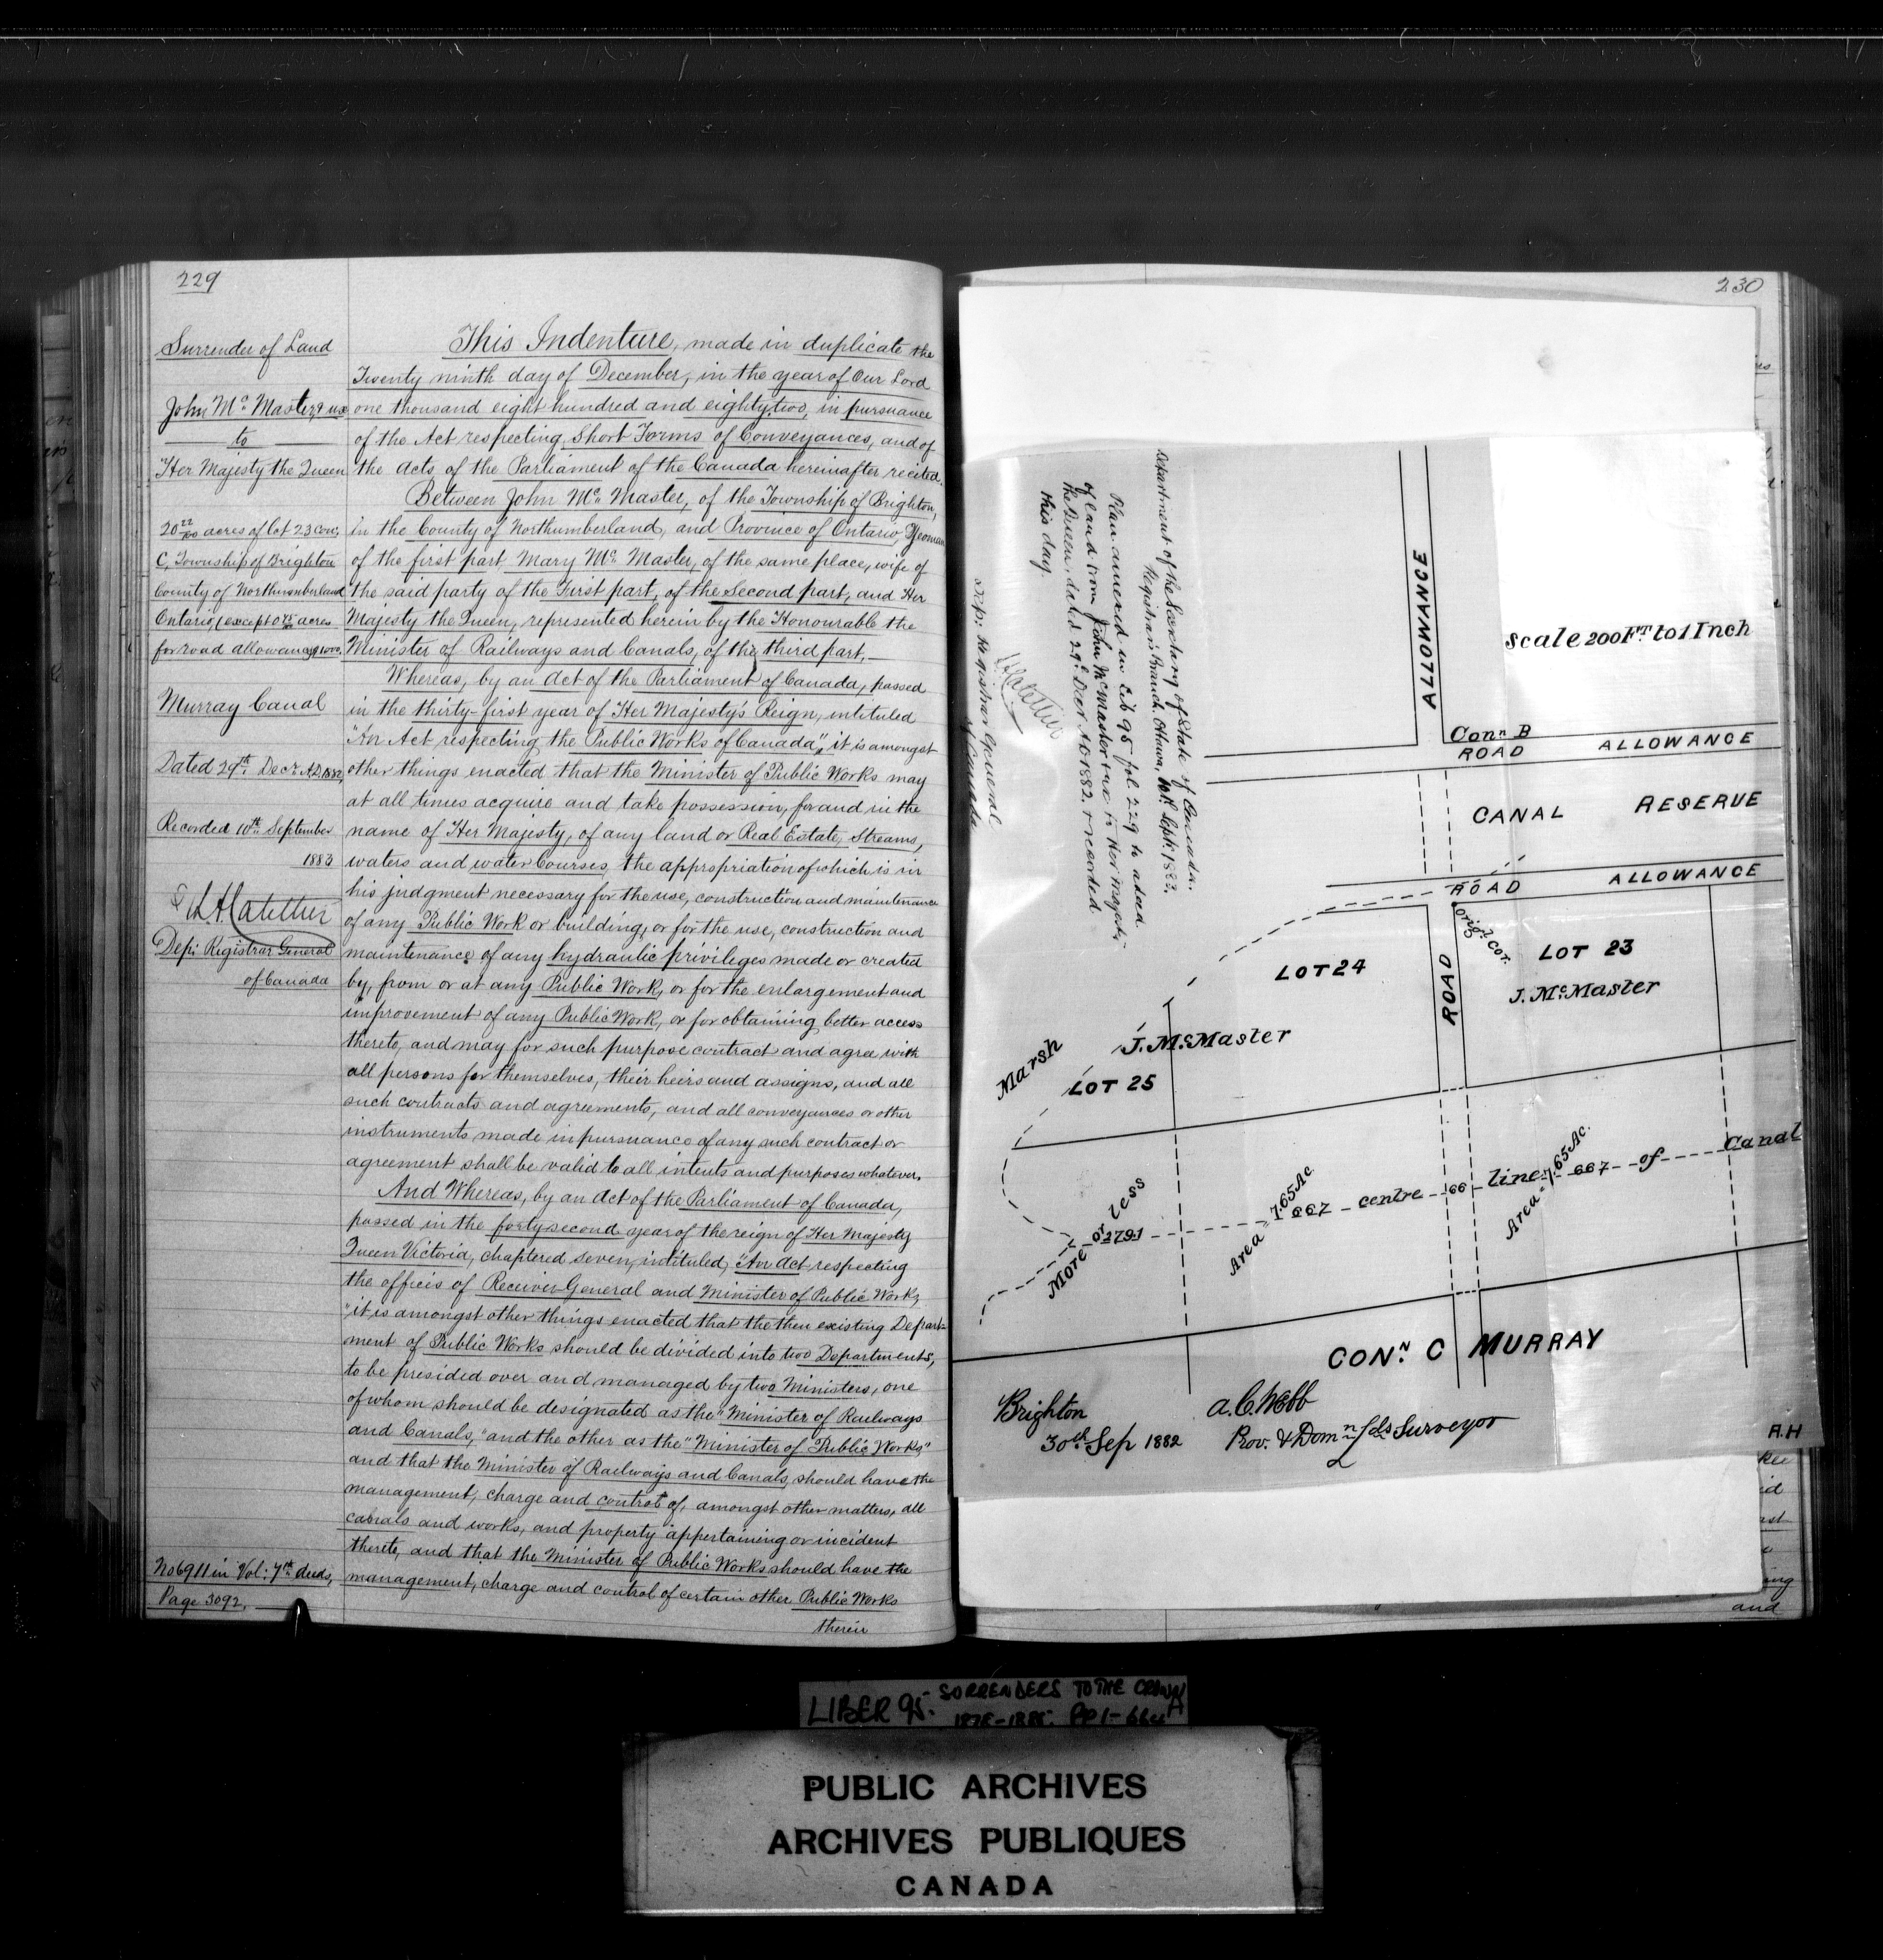 229
Surrender of Land
John Mc Master, & ux
to
Her Majesty the Queen
20 22/100 acres of lot 23 Con;
C, Township of Brighton
County of Northumberland
Ontario, (except 0 45/100 acres
for road allowance
Murray Canal
Dated 29th Decr A.D. 1882,
Recorded 10th September
1883
Dep: Registrar General
of Canada
No 6911 in Vol: 7th deeds,
Page 3092.
This Indenture, made in duplicate the
Twenty ninth day of December, in the year of Our Lord
one thousand eight hundred and eighty two, in pursuance
of the Act respecting Short Forms of Conveyances, and of
the Acts of the Parliament of the Canada hereinafter recited.
Between John Mc Master, of the Township of Brighton,
in the County of Northumberland, and Province of Ontario, Yeoman
of the first part, Mary Mc Master, of the same place, wife of
the said party of the First part, of the Second part, and Her
Majesty the Queen, represented herein by the Honourable the
Minister of Railways and Canals, of the third part.
Whereas, by an Act of the Parliament of Canada, passed
in the thirty-first year of Her Majesty's Reign, intituled
"An Act respecting the Public Works of Canada", it is amongst
other things enacted that the Minister of Public Works may
at all times acquire and take possession, for and in the
name of Her Majesty, of any land or Real Estate, Streams,
waters and water Courses, the appropriation of which is in
his judgment necessary for the use, construction and maintenance
of any Public Work or building, or for the use, construction and
maintenance of any hydraulic privileges made or created
by, from or at any Public Work, or for the enlargement and
improvement of any Public Work, or for obtaining better access
thereto, and may for such purpose contract and agree with
all persons for themselves, their heirs and assigns, and all
such contracts and agreements, and all conveyances or other
instruments made in pursuance of any such contract or
agreement shall be valid to all intents and purposes whatever.
And Whereas, by an Act of the Parliament of Canada,
passed in the forty second year of the reign of Her Majesty
Queen Victoria, chaptered seven, intituled, "An Act respecting
the offices of Receiver General and Minister of Public Works,
"it is amongst other things enacted that the then existing Depart-
ment of Public Works should be divided into two Departments,
to be presided over and managed by two Ministers, one
of whom should be designated as the "Minister of Railways
and Canals," and the other as the "Minister of Public Works"
and that the Minister of Railways and Canals, should have the
management, charge and control of, amongst other matters, all
canals and works, and property appertaining or incident
thereto, and that the Minister of Public Works should have the
management, charge and control of certain other Public Works
therein
230
Department of the Secretary of State of Canada.
Registrar's Branch, Ottawa, 10th Sept. 1883.
Plan annexed in Lib 95 fol 229 to a deed
of land from John McMaster & ux to Her Majesty
the Queen, dated 29th Decr A.D. 1882. & recorded
this day.
Dep: Registrar General
of Canada
ALLOWANCE
Scale 200 FT to 1 Inch
Conn B
ROAD ALLOWANCE
CANAL RESERVE
ROAD ALLOWANCE
Orig'l cor.
LOT 24
ROAD
LOT 23
J. McMaster
Marsh
J. McMaster
LOT 25
667 centre 66 line 667 of Canal
Area 7.65 Ac.
Area = 7.65 Ac.
2791
More or less
CONN C MURRAY
Brighton
30th Sep 1882
A. C. Webb
Prov. & Domn Lds Surveyor
A.H
and
LIBER 95. SURRENDERS TO THE CROWN
PUBLIC ARCHIVES
ARCHIVES PUBLIQUES
CANADA